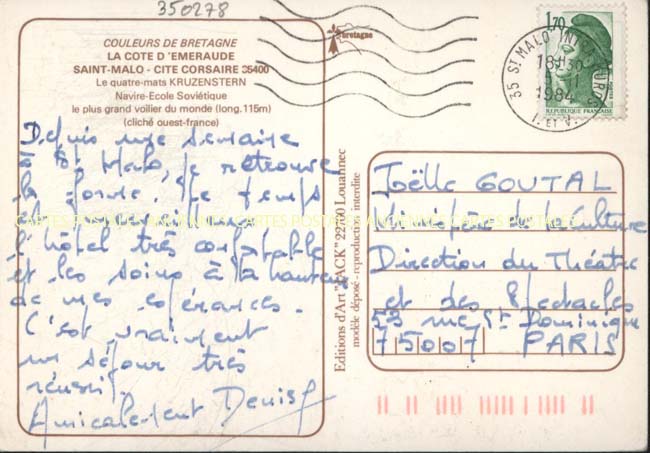 350278
COULEURS DE BRETAGNE
LA COTE D'EMERAUDE
SAINT-MALO - CITE CORSAIRE 35400
Le quatre-mats KRUZENSTERN
Navire-Ecole Soviétique
le plus grand voilier du monde (long. 115m)
(cliché ouest-france)
bretagne
1,70
REPUBLIQUE FRANCAISE
35 ST MALO INTRA MUROS
18H30
1984
I. ET V.
Depuis une semaine
à St Malo, je retrouve
la forme. Le temps
l'hôtel très confortable
et les soins à la hauteur
de mes espérances.
C'est vraiment
un séjour très
réussi.
Amicalement Denise
Editions d'Art "JACK" 22700 Louannec
modèle déposé - reproduction interdite
Joëlle GOUTAL
Ministère de la Culture
Direction du Théâtre
et des Spectacles
53 rue St Dominique
75007 PARIS